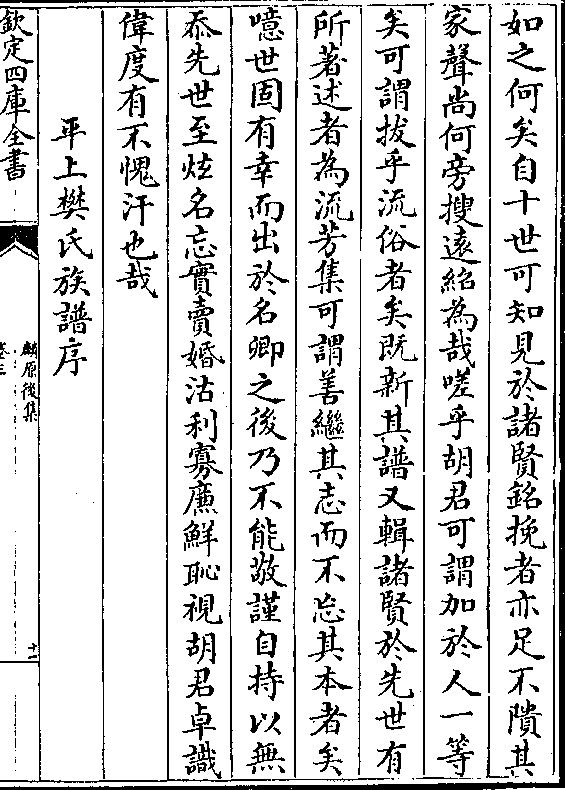 如之何矣自十世可知見於諸賢銘挽者亦足不隤其
家聲尚何旁搜遠紹為哉嗟乎胡君可謂加於人一等
矣可謂拔乎流俗者矣既新其譜又輯諸賢於先世有
所著述者為流芳集可謂善繼其志而不忘其本者矣
噫世固有幸而出於名卿之後乃不能敬謹自持以無
忝先世至炫名忘實賣婚沽利寡廉鮮恥視胡君卓識
偉度有不愧汗也哉
平上樊氏族譜序
欽定四庫全書
麟原後集
卷三
十一